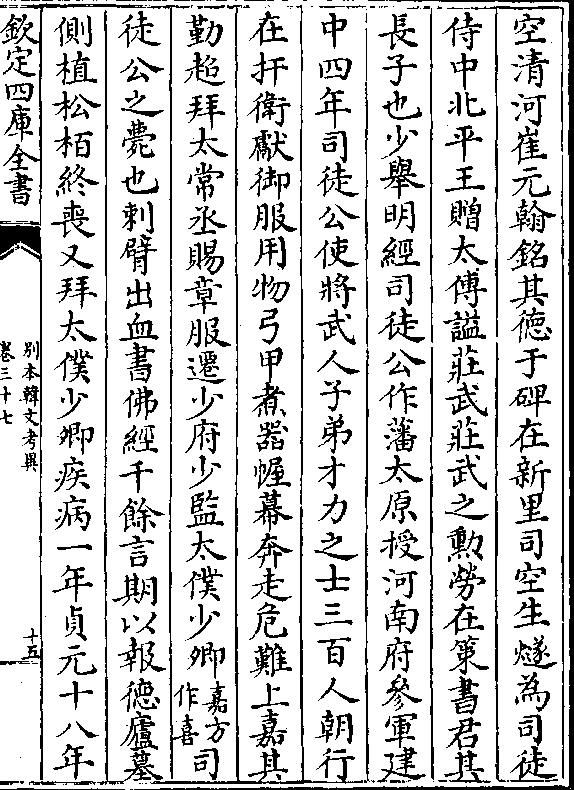 空清河崔元翰銘其德于碑在新里司空生燧為司徒
侍中北平王贈太傅謚莊武莊武之勳勞在策書君其
長子也少舉明經司徒公作藩太原授河南府參軍建
中四年司徒公使將武人子弟才力之士三百人朝行
在扞衛獻御服用物弓甲煮器幄幕奔走危難上嘉其
勤超拜太常丞賜章服遷少府少監太僕少卿嘉方作喜司
徒公之薨也刺臂出血書佛經千餘言期以報德廬墓
側植松栢終喪又拜太僕少卿疾病一年貞元十八年
欽定四庫全書
別本韓文考異
卷三十七
十五